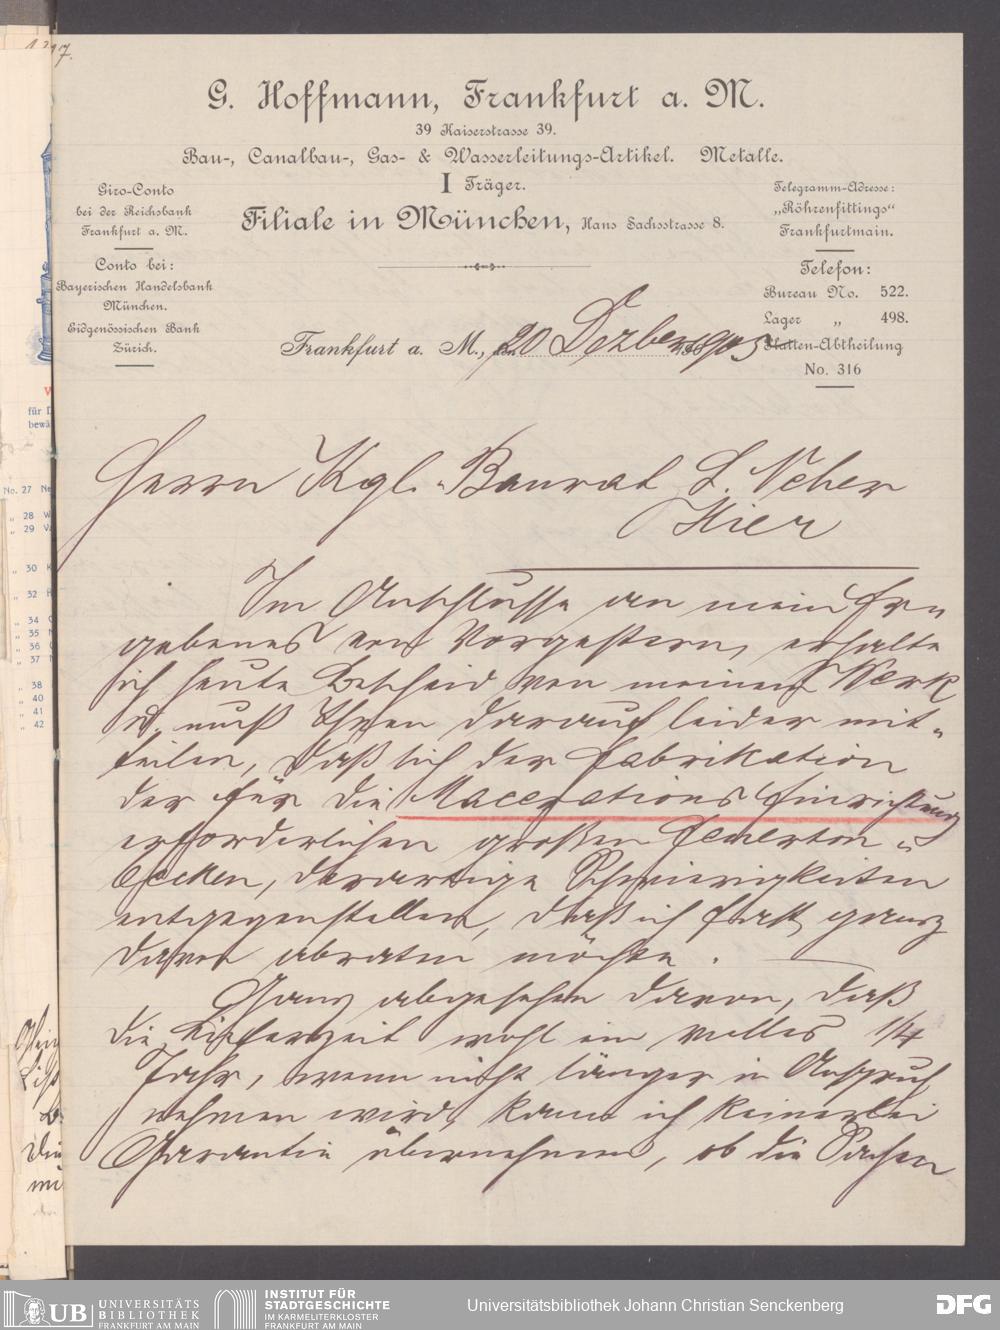 G. Hoffmann, Frankfurt a. M.
39 Kaiserstrasse 39.
Bau-, Canalbau-, Gas- & Wasserleitungs-Artikel. Metalle.
I Träger.
Filiale in München, Hans Sachsstrasse 8.
Giro-Conto
bei der Reichsbank
Frankfurt a. M.
Conto bei:
Bayerischen Handelsbank
München.
Eidgenössischen Bank
Zürich.
Telegramm-Adresse:
„Röhrenfittings“
Frankfurtmain.
Telefon:
Bureau No. 522.
Lager „ 498.
Platten-Abtheilung
No. 316
Frankfurt a. M., den 20 Dezber 1905
Herrn Kgl. Baurat L. Neher
Hier
Im Anschlusse an mein Er-
gebenes von Vorgestern, erhalte
ich heute Bescheid von meinem Werk
u. muß Ihnen darauf leider mit-
teilen, daß sich der Fabrikation
der für die Macerations Einrichtung
erforderlichen großen Feuerton-
becken, derartige Schwierigkeiten
entgegenstellen, daß ich fast ganz
davon abraten möchte.
Ganz abgesehen davon, daß
die Lieferzeit wohl ein volles 1/4
Jahr, wenn nicht länger in Anspruch
nehmen wird, kann ich keinerlei
Garantie übernehmen, ob die Sachen
No. 27
„ 28
„ 29
„ 30
„ 32
„ 34
„ 35
„ 36
„ 37
„ 38
„ 40
„ 41
„ 42
UB UNIVERSITÄTS
BIBLIOTHEK
FRANKFURT AM MAIN
INSTITUT FÜR
STADTGESCHICHTE
IM KARMELITERKLOSTER
FRANKFURT AM MAIN
Universitätsbibliothek Johann Christian Senckenberg
DFG